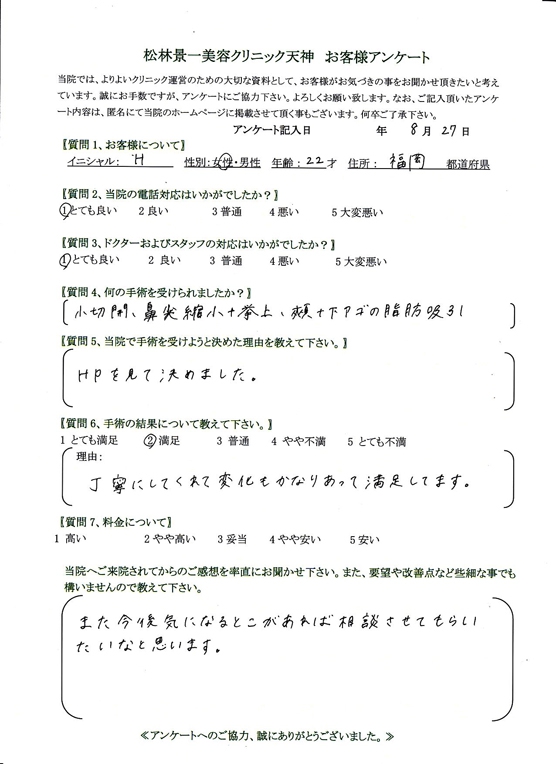 松林景一美容クリニック天神　お客様アンケート
当院では、よりよいクリニック運営のための大切な資料として、お客様がお気づきの事をお聞かせ頂きたいと考え
ています。誠にお手数ですが、アンケートにご協力下さい。よろしくお願い致します。なお、ご記入頂いたアンケ
ート内容は、匿名にて当院のホームページに掲載させて頂く事もございます。何卒ご了承下さい。
アンケート記入日　　　年　8月27日
【質問1、お客様について】
イニシャル：H　性別：女性・男性　年齢：22才　住所：福岡　都道府県
【質問2、当院の電話対応はいかがでしたか？】
①とても良い　2良い　3普通　4悪い　5大変悪い
【質問3、ドクターおよびスタッフの対応はいかがでしたか？】
①とても良い　2良い　3普通　4悪い　5大変悪い
【質問4、何の手術を受けられましたか？】
小切開、鼻尖縮小+挙上、頬+下アゴの脂肪吸引
【質問5、当院で手術を受けようと決めた理由を教えて下さい。】
HPを見て決めました。
【質問6、手術の結果について教えて下さい。】
1とても満足　②満足　3普通　4やや不満　5とても不満
理由：
丁寧にしてくれて変化もかなりあって満足してます。
【質問7、料金について】
1高い　2やや高い　3妥当　4やや安い　5安い
当院へご来院されてからのご感想を率直にお聞かせ下さい。また、要望や改善点など些細な事でも
構いませんので教えて下さい。
また今後気になるとこがあれば相談させてもらい
たいなと思います。
≪アンケートへのご協力、誠にありがとうございました。≫